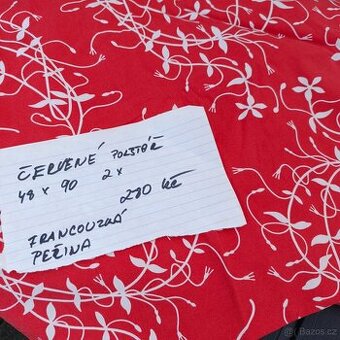 ČERVENÉ POLŠTÁŘ
48 x 90 2x
280 Kč
FRANCOUZKÁ
PEŘINA
Bazos.cz